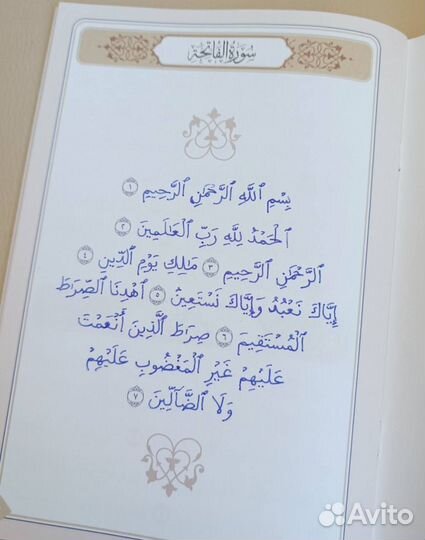 سُورَةُ الفَاتِحَةِ
بِسْمِ ٱللَّهِ ٱلرَّحْمَٰنِ ٱلرَّحِيمِ ١
ٱلْحَمْدُ لِلَّهِ رَبِّ ٱلْعَٰلَمِينَ ٢
ٱلرَّحْمَٰنِ ٱلرَّحِيمِ ٣ مَٰلِكِ يَوْمِ ٱلدِّينِ ٤
إِيَّاكَ نَعْبُدُ وَإِيَّاكَ نَسْتَعِينُ ٥ ٱهْدِنَا ٱلصِّرَٰطَ
ٱلْمُسْتَقِيمَ ٦ صِرَٰطَ ٱلَّذِينَ أَنْعَمْتَ
عَلَيْهِمْ غَيْرِ ٱلْمَغْضُوبِ عَلَيْهِمْ
وَلَا ٱلضَّآلِّينَ ٧
Avito